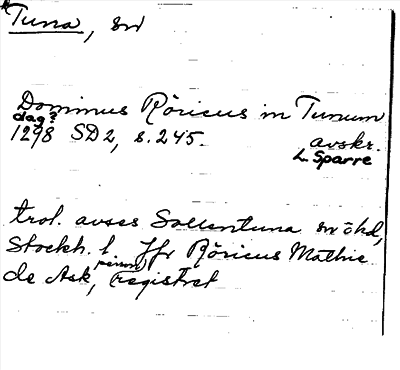 Tuna, sn
Dominus Röricus in Tunum
dag?
1298 SD2, s. 245. avskr.
L. Sparre
trol. avses Sollentuna sn o hd,
Stockh. l. Jfr Röricus Mathie
de Ask, person registret